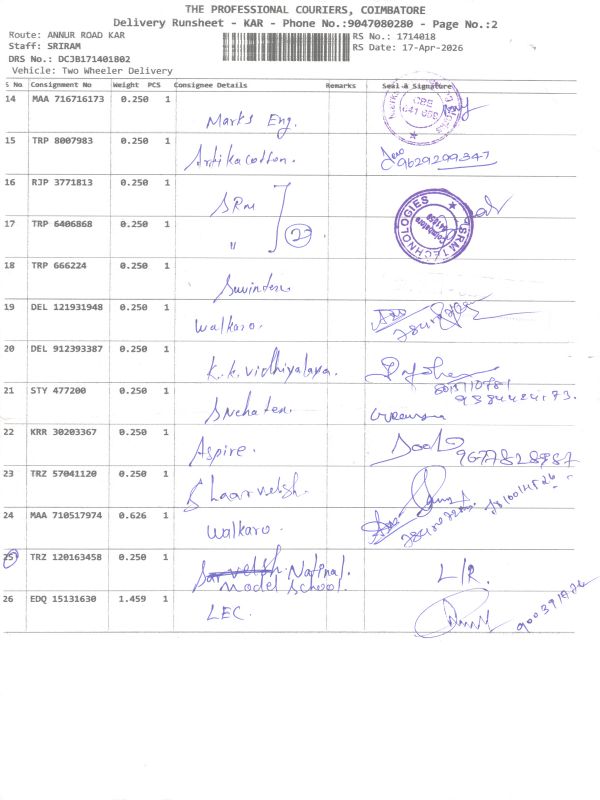 THE PROFESSIONAL COURIERS, COIMBATORE
Delivery Runsheet - KAR - Phone No.:9047080280 - Page No.:2
Route: ANNUR ROAD KAR
RS No.: 1714018
Staff: SRIRAM
RS Date: 17-Apr-2026
DRS No.: DCJB171401802
Vehicle: Two Wheeler Delivery
S No Consignment No Weight PCS Consignee Details Remarks Seal & Signature
14 MAA 716716173 0.250 1
Marks Eng.
15 TRP 8007983 0.250 1
Artika cotton.
9629299347
16 RJP 3771813 0.250 1
SRM
17 TRP 6406868 0.250 1
"
SRM TECHNOLOGIES
Coimbatore
18 TRP 666224 0.250 1
19 DEL 121931948 0.250 1
Walkaro.
20 DEL 912393387 0.250 1
K.K. Vidhiyalaya.
21 STY 477200 0.250 1
22 KRR 30203367 0.250 1
Aspire.
23 TRZ 57041120 0.250 1
24 MAA 710517974 0.626 1
Walkaro.
25 TRZ 120163458 0.250 1
National
Model School.
L/R.
26 EDQ 15131630 1.459 1
LEC.